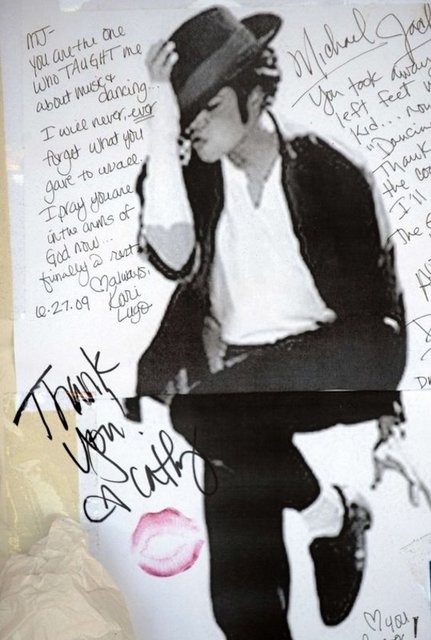 MJ-
you are the one
who TAUGHT me
about music &
dancing...
I will never, ever
forget what you
gave to us all
I pray you are
in the arms of
God now...
finally @ rest
♡ always,
Kari
Lugo
6.27.09
Thank
you
♡ Cathy
Michael Jack
You took away
left feet
Kid... now
"Dancin
Thank
the co
I'll
The
♡ you